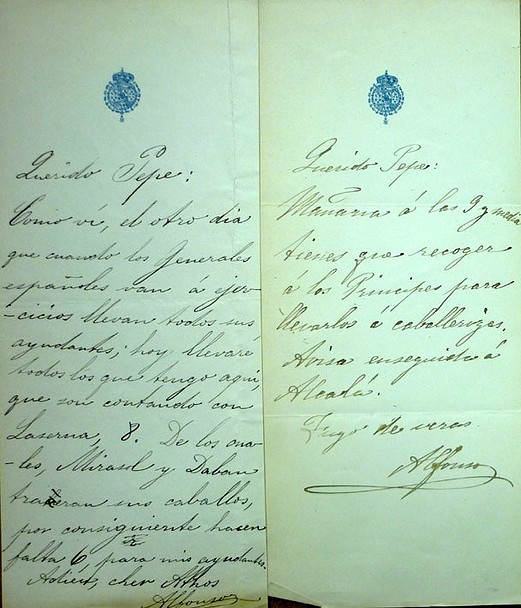 Querido Pepe:
Como vi, el otro dia
que cuando los Generales
españoles van á ejer-
-cicios llevan todos sus
ayudantes; hoy llevaré
todos los que tengo aquí,
que son contando con
Laserna, 8. De los cua-
-les, Mirasol y Daban
traeran sus caballos,
por consiguiente hacen
falta 6, para mis ayudantes.
Adieu, cher Athos
Alfonso
Querido Pepe:
Mañana á las 9 y media
tienes que recoger
á los Principes para
llevarlos á caballerizas.
Avisa enseguida á
Alcalá.
Tuyo de veras
Alfonso